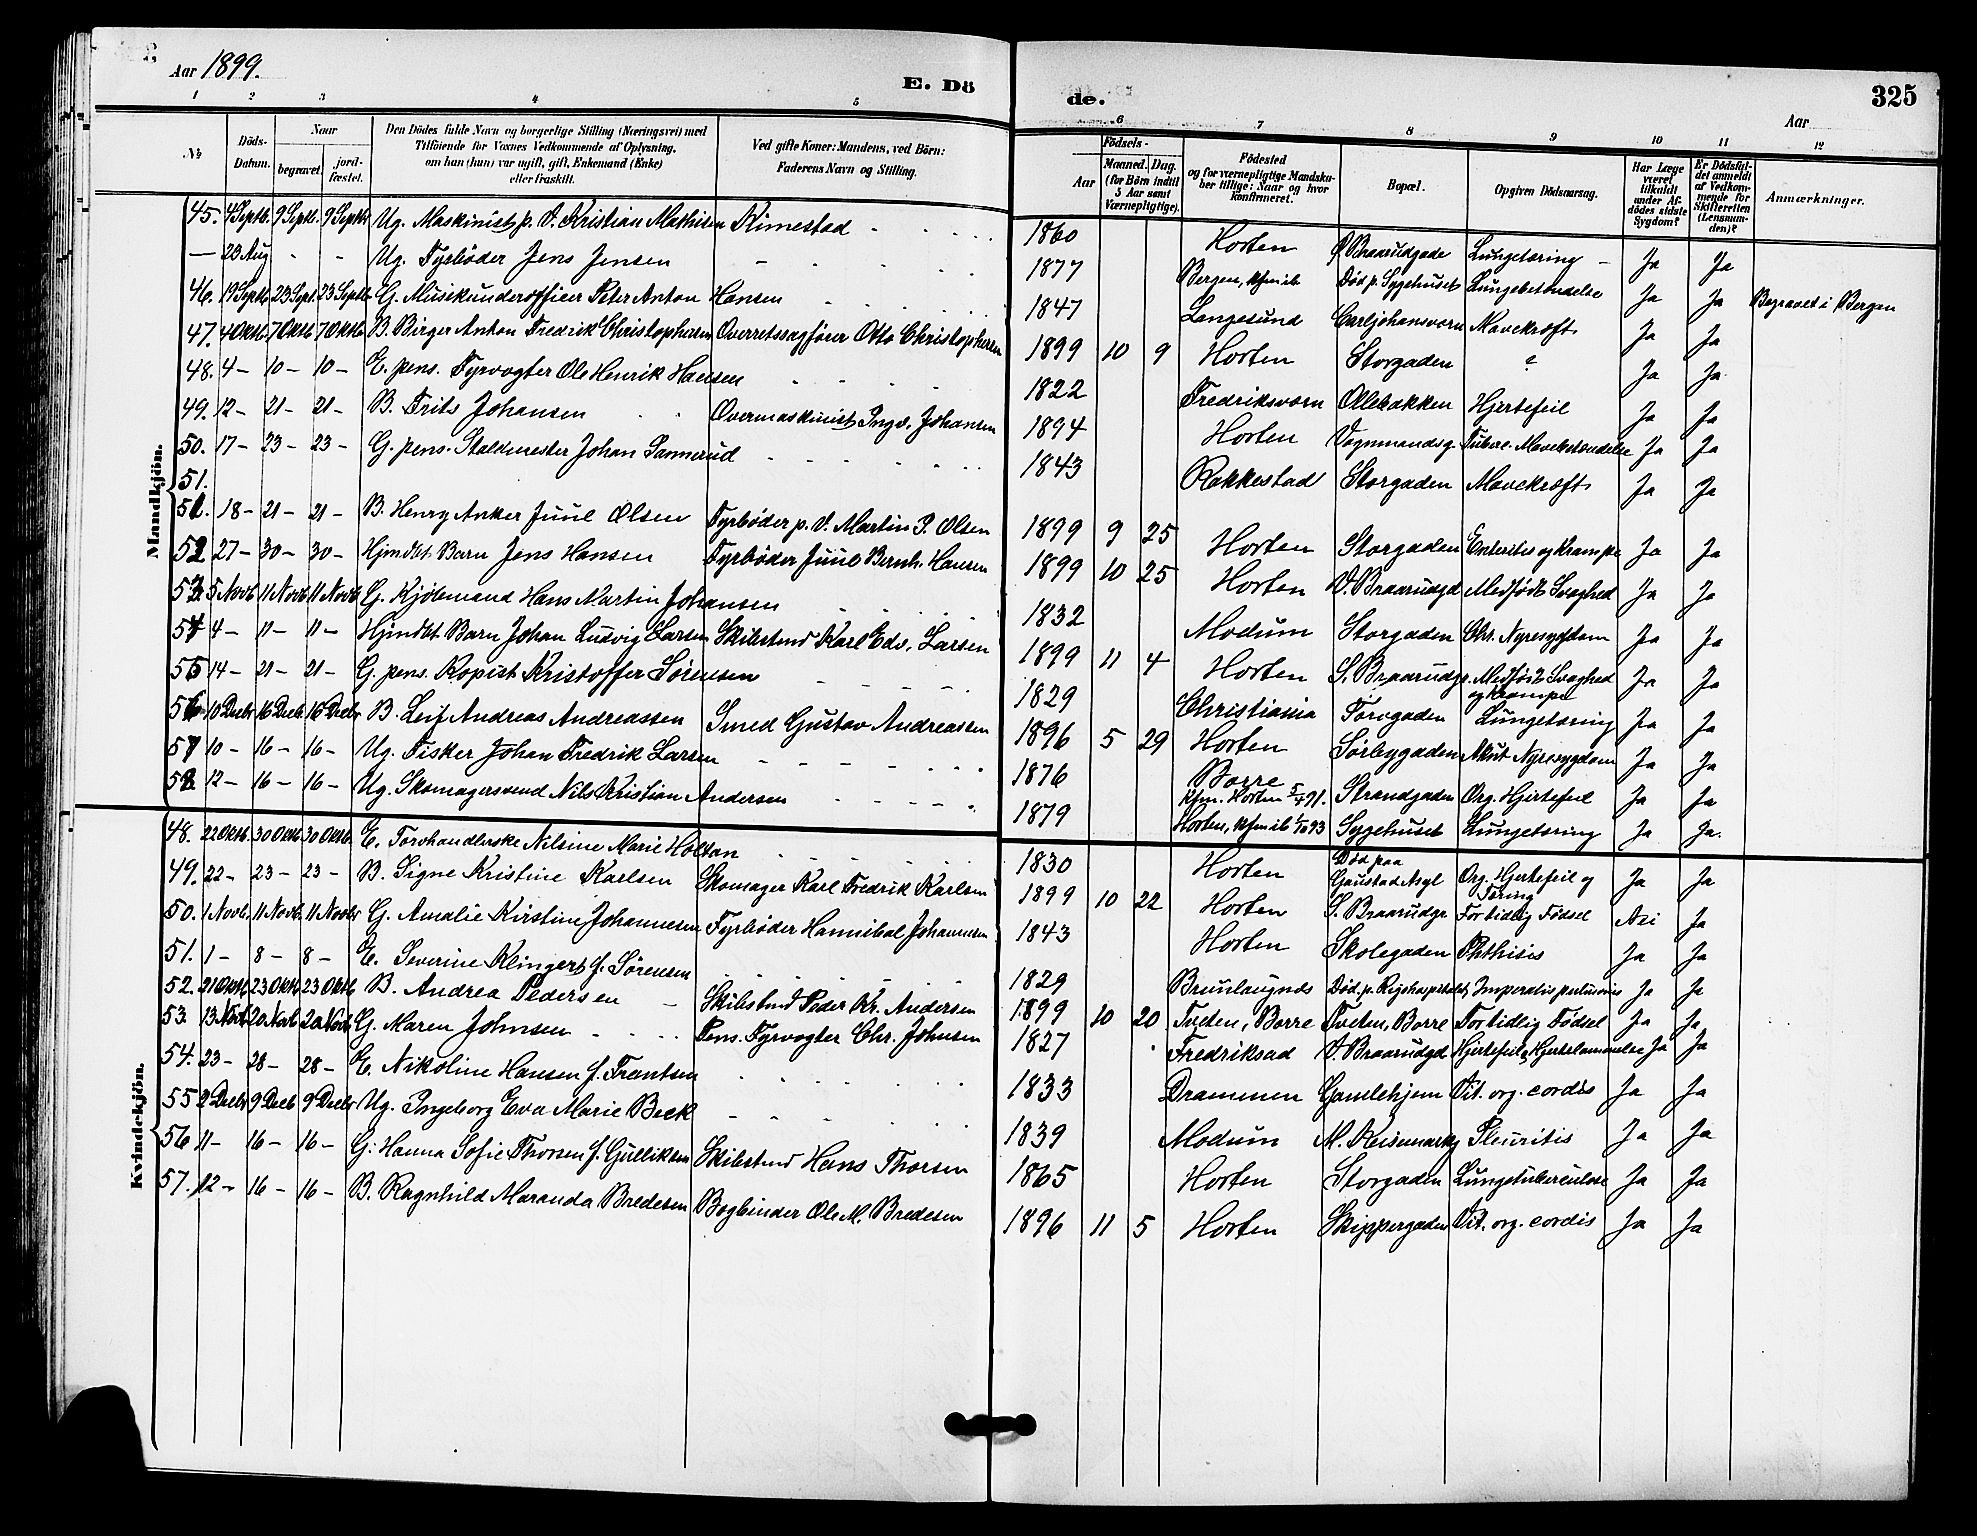 Aar 1899.
E. Dö
de.
Aar
325
1 2 3 4 5 6 7 8 9 10 11 12
No
Döds-Datum.
Naar
begravet.
jord-fæstet.
Den Dödes fulde Navn og borgerlige Stilling (Næringsvei) med Tilföiende for Voxnes Vedkommende af Oplysning, om han (hun) var ugift, gift, Enkemand (Enke) eller fraskilt.
Ved gifte Koner: Mandens, ved Börn: Faderens Navn og Stilling.
Födsels-
Aar
Maaned. Dag.
(for Börn indtil 5 Aar samt Værnepligtige).
Födested og for værnepligtige Mandskaber tillige: Naar og hvor konfirmeret.
Bopæl.
Opgiven Dödsaarsag.
Har Læge været tilkaldt under Afdödes sidste Sygdom?
Er Dödsfaldet anmeldt af Vedkommende for Skifteretten (Lensmanden)?
Anmærkninger.
Mandkjön.
45. 4 Septb. 9 Septb. 9 Septbr Ug. Maskinist p. V. Kristian Mathisen Kimestad 1860 Horten Ø. Braarudgade Lungetæring Ja Ja
— 23 Aug - - Ug. Fyrbøder Jens Jensen 1877 Bergen, kfm ib Død p. Sygehuset Lungebetændelse Ja Ja Begravet i Bergen
46. 19 Septb 23 Sept. 23 Septb G. Musikunderofficer Peter Anton Hansen 1847 Langesund Carljohansværn Mavekræft Ja Ja
47. 4 Oktb. 7 Oktb 7 Oktb B. Birger Anton Fredrik Christophersen Overretssagfører Otto Christophersen 1899 10 9 Horten Storgaden ? Ja Ja
48. 4 — 10 — 10 — E. pens. Fyrvogter Ole Henrik Hansen 1822 Fredriksværn Ollebakken Hjertefeil Ja Ja
49. 12 — 21 — 21 — B. Frits Johansen Overmaskinist Ingv. Johansen 1894 Horten Vognmandsg. Tuberc. Mavebetændelse Ja Ja
50. 17 — 23 — 23 — G. pens. Staldmester Johan Sannerud 1843 Rakkestad Storgaden Mavekræft Ja Ja
51.
51. 18 — 21 — 21 — B. Henry Anker Juul Olsen Fyrbøder p. V. Martin P. Olsen 1899 9 25 Horten Storgaden Enteritis og Krampe Ja Ja
52 27 — 30 — 30 — Hjmdbt. Barn Jens Hansen Fyrbøder Juul Bernh. Hansen 1899 10 25 Horten V. Braarudgd Medfødt Svaghed Ja Ja
53. 5 Novb 11 Novb 11 Novb G. Kjøbmand Hans Martin Johansen 1832 Modum Storgaden Chr. Nyresygdom Ja Ja
54 4 — 11 — 11 — Hjmdbt Barn Johan Ludvig Larsen Skibstmd Karl Edv. Larsen 1899 11 4 Horten S. Braarudgr. Medfødt Svaghed og Krampe Ja Ja
55 14 — 21 — 21 — G. pens. Kopist Kristoffer Sørensen 1829 Christiania Torvgaden Lungetæring Ja Ja
56 10 Decbr 16 Decb 16 Decbr B. Leif Andreas Andreassen Smed Gustav Andreassen 1896 5 29 Horten Sørbygaden Akut Nyresygdom Ja Ja
57 10 — 16 — 16 — Ug. Fisker Johan Fredrik Larsen 1876 Borre kfm. Horten 5/4 91. Strandgaden Org. Hjertefeil Ja Ja
58 12 — 16 — 16 — Ug. Skomagersvend Nils Kristian Andersen 1879 Horten, kfm ib 1/10 93 Sygehuset Lungetæring Ja Ja.
Kvindekjön.
48. 22 Oktb. 30 Oktb. 30 Oktb. E. Torvhandlerske Nilsine Marie Holtan 1830 Horten Død paa Gaustad Asyl Org. Hjertefeil og Tæring Ja Ja
49. 22 — 23 — 23 — B. Signe Kristine Karlsen Skomager Karl Fredrik Karlsen 1899 10 22 Horten S. Braarudgr Fortidlig Fødsel Nei Ja
50. 1 Novb. 11 Novb. 11 Novbr G. Amalie Kirstine Johannesen Fyrbøder Hannibal Johannesen 1843 Horten Skolegaden Phthisis Ja Ja
51. 1 — 8 — 8 — E. Severine Klingert f. Sørensen 1829 Brunlaugnds Død p. Rigshospitalet Ja Ja
52. 21 Oktb 23 Oktb 23 Oktb B. Andrea Pedersen Skibstmd Peder Kr. Andersen 1899 10 20 Tveten, Borre Tveten, Borre Fortidlig Fødsel Ja Ja
53. 13 Novb 20 Novb 20 Novb G. Maren Johnsen Pens. Fyrvogter Chr. Johnsen 1827 Fredriksad V. Braarudgd Hjertefeil, Hjertelammelse Ja Ja
54. 23 — 28 — 28 — E. Nikoline Hansen f. Frantsen 1833 Drammen Gamlehjem Vit. org. cordis Ja Ja
55 2 Decbr 9 Decb 9 Decbr Ug. Ingeborg Eva Marie Beck 1839 Modum M. Keisemarkg Pleuritis Ja Ja
56 11 — 16 — 16 — G. Hanna Sofie Thorsen f. Gulliksen Skibstmd Hans Thorsen 1865 Horten Storgaden Lungetuberculose Ja Ja
57. 12 — 16 — 16 — B. Ragnhild Maranda Bredesen Bogbinder Ole M. Bredesen 1896 11 5 Horten Skippergaden Vit. org. cordis Ja Ja